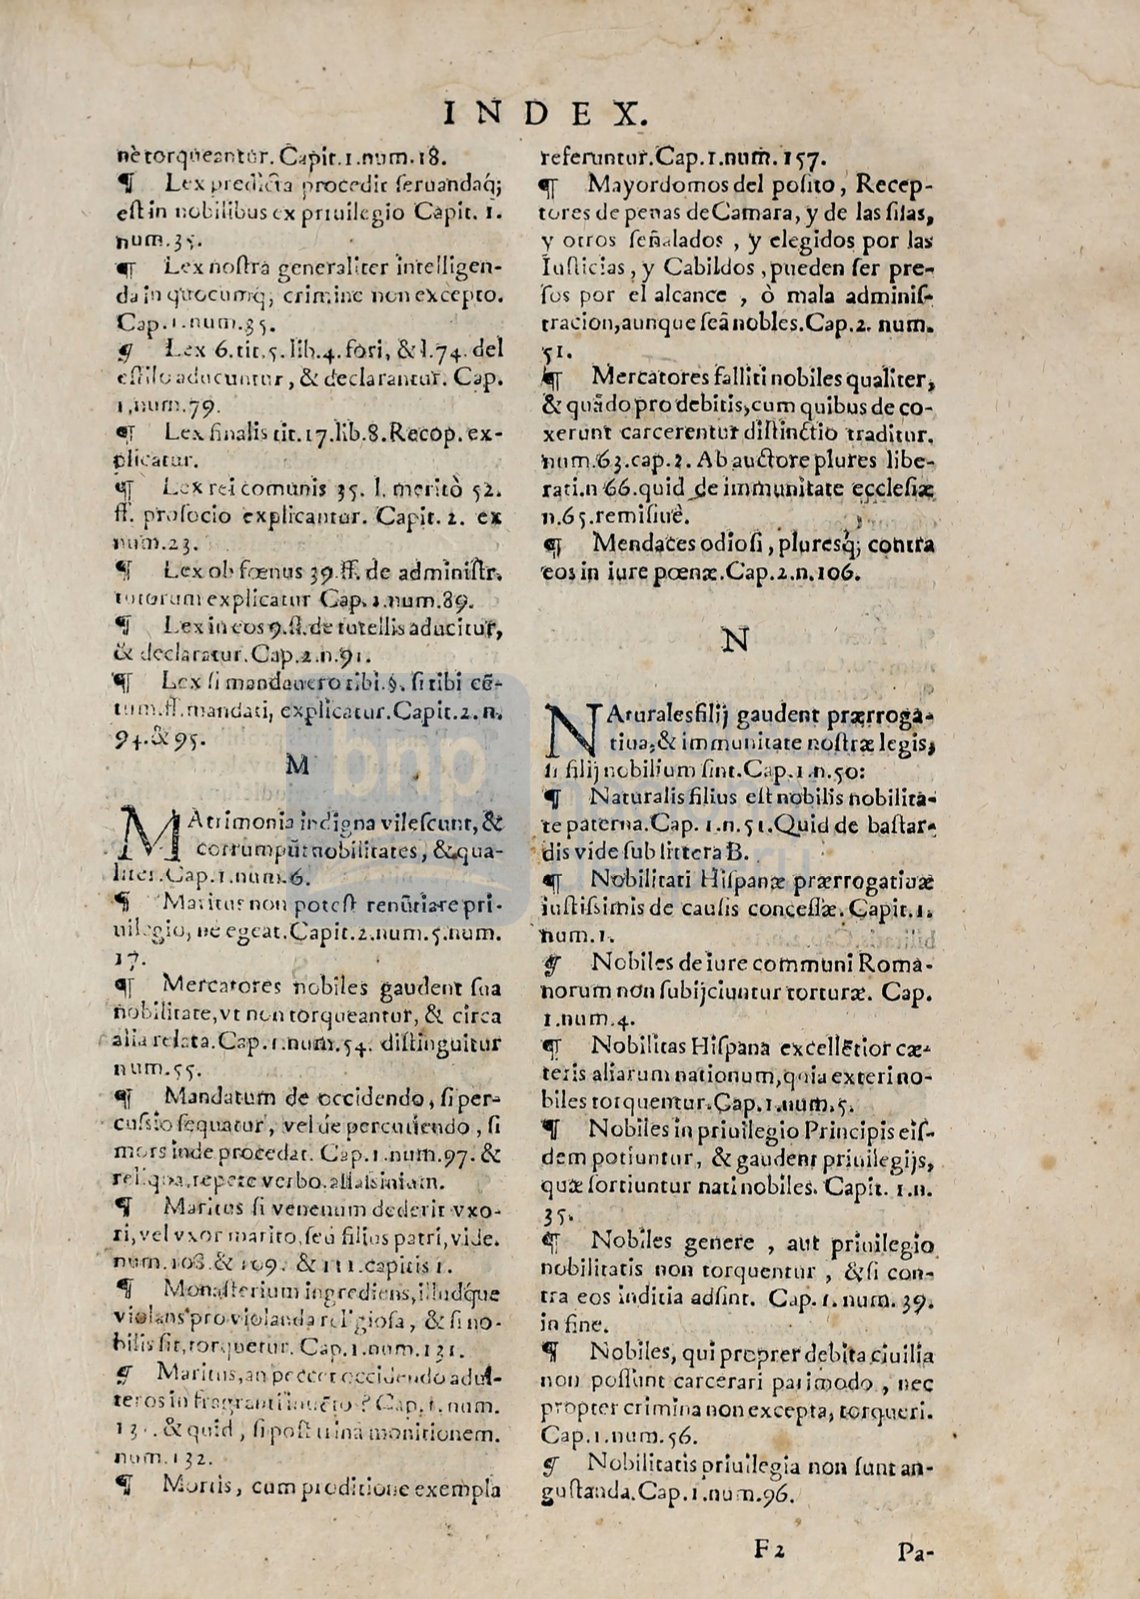 INDEX.
nè torqueantur. Capit.1.num.18.
¶ Lex predicta procedit seruandaq́;
est in nobilibus ex priuilegio Capit. 1.
num.35.
¶ Lex nostra generaliter intelligen-
da in quocumq; crimine non excepto.
Cap.1.num.35.
¶ Lex 6.tit.5.lib.4.fori, & l.74.del
estilo aducuntur, & declarantur. Cap.
1.num.79.
¶ Lex finalis tit.17.lib.8.Recop.ex-
plicatur.
¶ Lex rei comunis 35. l. meritò 52.
ff. pro socio explicantur. Capit.2. ex
num.23.
¶ Lex ob fœnus 39.ff. de administr.
tutorum explicatur Cap.2.num.89.
¶ Lex in eos 9.ff.de tutellis aducitur,
& declaratur.Cap.2.n.91.
¶ Lex si mandauero tibi.§. si tibi cē-
tum.ff.mandati, explicatur.Capit.2.n.
94.&95.
M
MAtrimonia indigna vilescunt, &
corrumpūt nobilitates, & qua-
liter.Cap.1.num.6.
¶ Maritus non potest renūtiare pri-
uilegio, ne egeat.Capit.2.num.5.num.
17.
¶ Mercatores nobiles gaudent sua
nobilitate, vt non torqueantur, & circa
alia relata.Cap.1.num.54. distinguitur
num.55.
¶ Mandatum de occidendo, si per-
cussio sequatur, vel de percutiendo, si
mors inde procedat. Cap.1.num.97.&
reliqua, repete verbo.assasinium.
¶ Maritus si venenum dederit vxo-
ri, vel vxor marito, seu filius patri, vide.
num.108.& 109. & 111.capitis 1.
¶ Monasterium ingrediens, illudq́ue
violans pro violanda religiosa, & si no-
bilis sit, torquetur. Cap.1.num.131.
¶ Maritus, an peccet occidendo adul-
teros in fragranti inuētos? Cap.1.num.
& quid, si post trina monitionem.
num.132.
¶ Mortis, cum proditione exempla
referuntur.Cap.1.num.157.
¶ Mayordomos del posito, Recep-
tores de penas de Camara, y de las sisas,
y otros señalados, y elegidos por las
Iusticias, y Cabildos, pueden ser pre-
sos por el alcance, ò mala adminis-
tracion, aunque seā nobles.Cap.2. num.
51.
¶ Mercatores falliti nobiles qualiter,
& quādo pro debitis, cum quibus deco-
xerunt carcerentur distinctio traditur.
num.63.cap.2. Ab auctore plures libe-
rati.n 66.quid de immunitate ecclesiæ
n.65.remisiuè.
¶ Mendaces odiosi, pluresq́; contra
eos in iure pœnæ.Cap.2.n.106.
N
NAturales filij gaudent prærroga-
tiua, & immunitate nostræ legis,
si filij nobilium sint.Cap.1.n.50:
¶ Naturalis filius est nobilis nobilita-
te paterna.Cap. 1.n.51.Quid de bastar-
dis vide sub littera B.
¶ Nobilitati Hispanæ prærrogatiuæ
iustissimis de causis concessæ. Capit.1.
num.1.
¶ Nobiles de iure communi Roma-
norum non subijciuntur torturæ. Cap.
1.num.4.
¶ Nobilitas Hispana excellētior cæ-
teris aliarum nationum, quia exteri no-
biles torquentur.Cap.1.num.5.
¶ Nobiles in priuilegio Principis eis-
dem potiuntur, & gaudent priuilegijs,
quæ sortiuntur nati nobiles. Capit. 1.n.
35.
¶ Nobiles genere, aut priuilegio
nobilitatis non torquentur, & si con-
tra eos inditia adsint. Cap.1.num.39.
in fine.
¶ Nobiles, qui propter debita ciuilia
non possunt carcerari pari modo, nec
propter crimina non excepta, torqueri.
Cap.1.num.56.
¶ Nobilitatis priuilegia non sunt an-
gustanda.Cap.1.num.96.
F2 Pa-